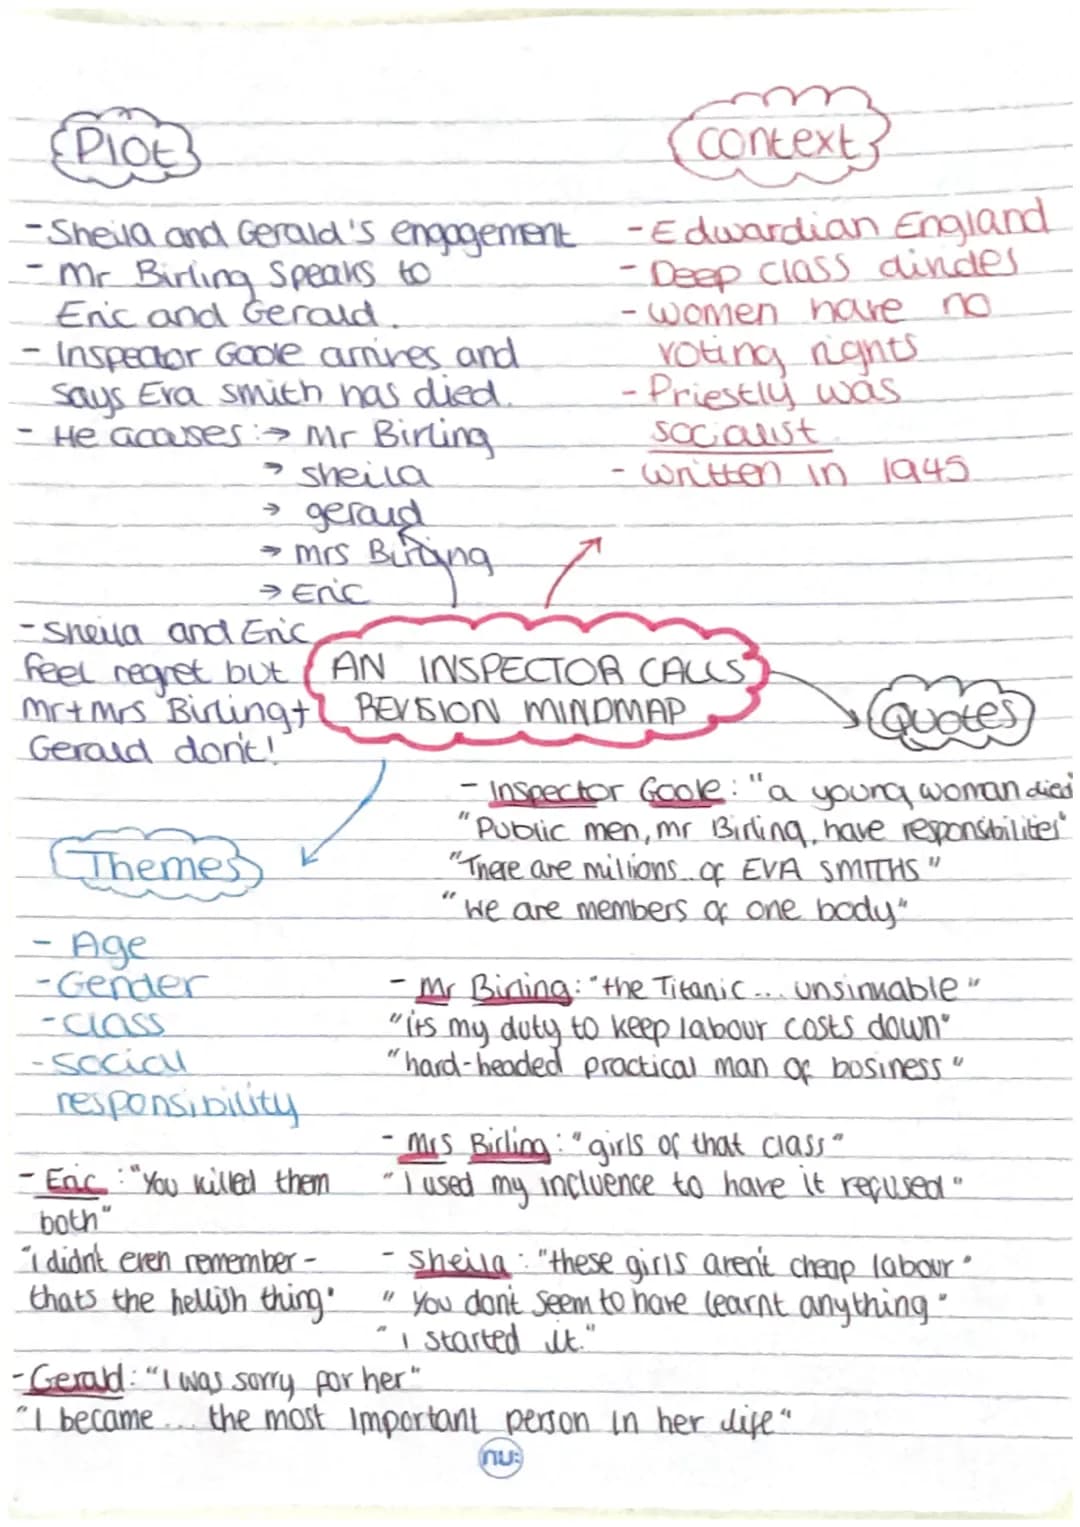 Plot
- Sheila and Gerald's engagement
- Mr Birling speaks to
Eric and Gerald.
- Inspector Goole arrives and
says Eva Smith has died.
- He accuses :→ Mr Birling
→ sheila
→ gerald
→ mrs Birling
→ Eric
- Sheila and Eric
feel regret but
mr+mrs Birling+
Gerald don't!
context
- Edwardian England
- Deep class divides
- women have no
voting rights
- Priestly was
socialist
- written in 1945
AN INSPECTOR CALLS
REVISION MINDMAP
Quotes
- Inspector Goole: "a young woman died"
"Public men, mr Birling, have responsibilites"
"There are millions.. of EVA SMITHS"
"We are members of one body"
- Mr Birling: "the Titanic... unsinkable"
"its my duty to keep labour costs down"
"hard-headed practical man of business"
- Mrs Birling: "girls of that class"
"I used my influence to have it refused"
- Sheila: "these girls aren't cheap labour"
"You dont seem to have learnt anything"
"I started it."
Themes
- Age
- Gender
- class
- social
responsibility
- Eric: "You killed them
both"
"I didnt even remember -
thats the hellish thing"
- Gerald: "I was sorry for her"
"I became... the most important person in her life"
nu: